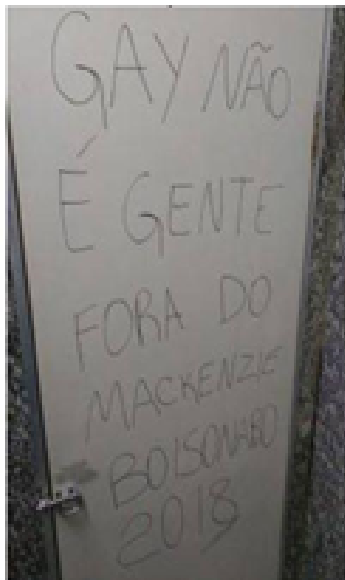 GAY NÃO
É GENTE
FORA DO
MACKENZIE
BOLSONARO
2018